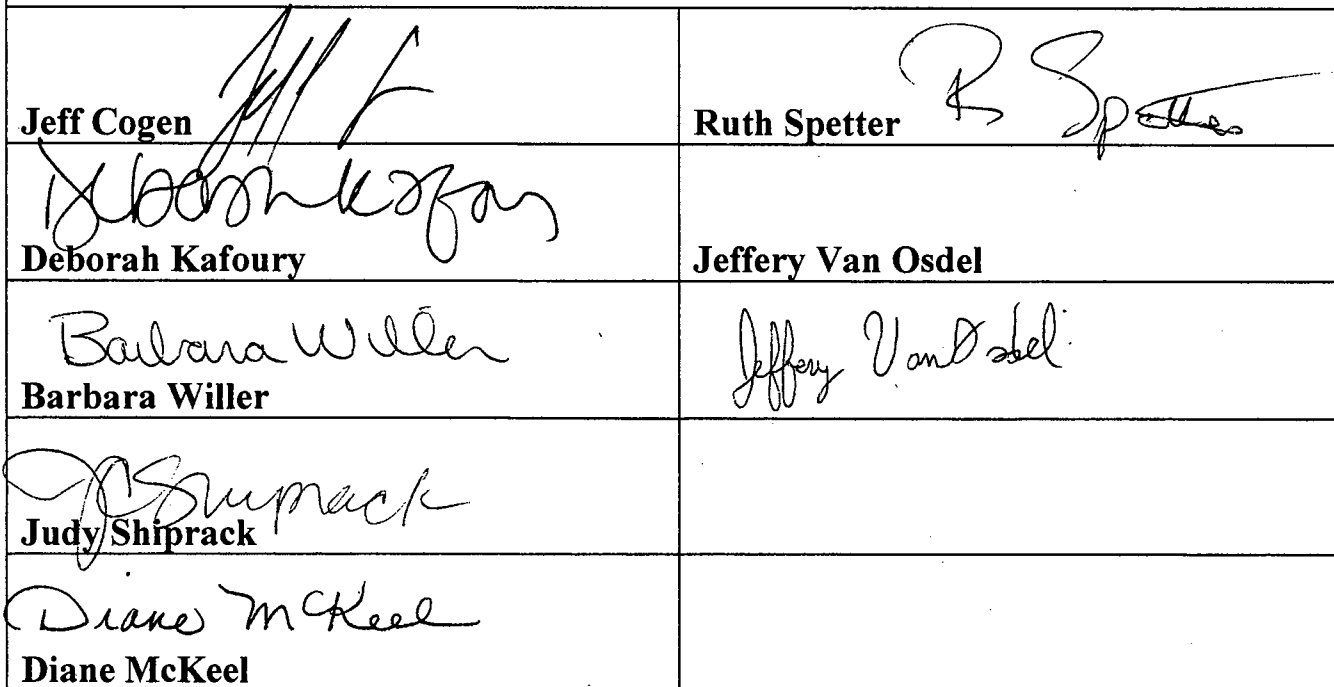 Jeff Cogen
Ruth Spetter R Spetter
Deborah Kafoury
Deborah Kafoury
Jeffery Van Osdel
Barbara Willer
Barbara Willer
Jeffery Van Osdel
JCShiprack
Judy Shiprack
Diane McKeel
Diane McKeel